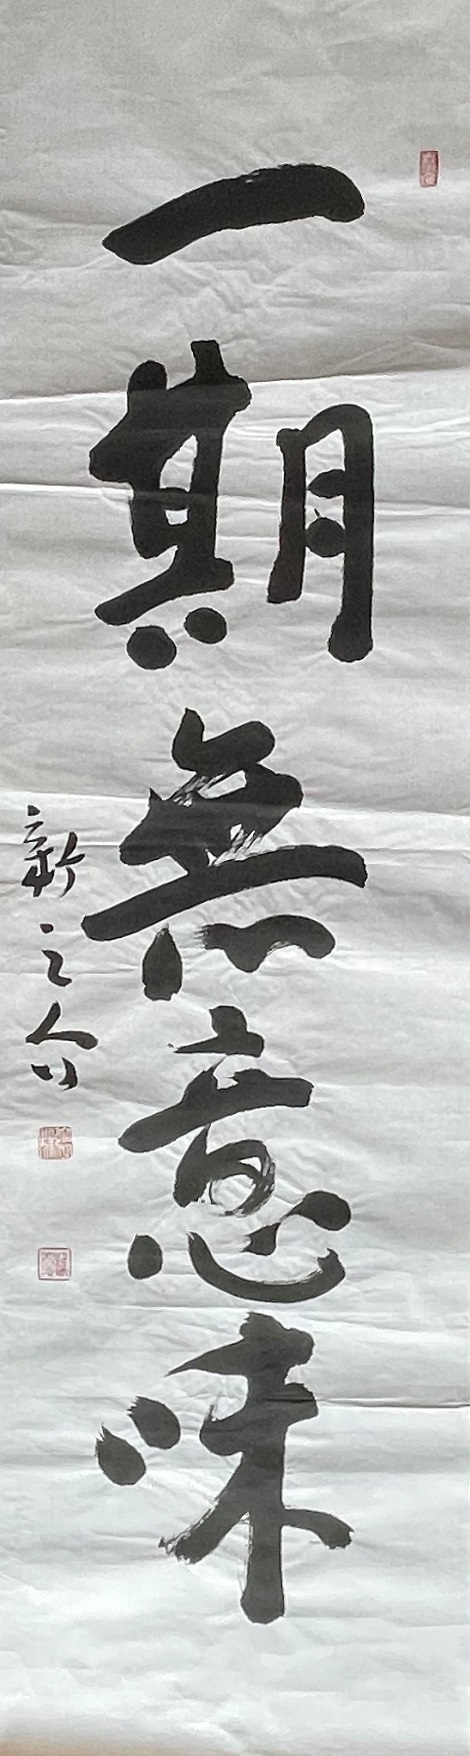 一期無意味
新之介